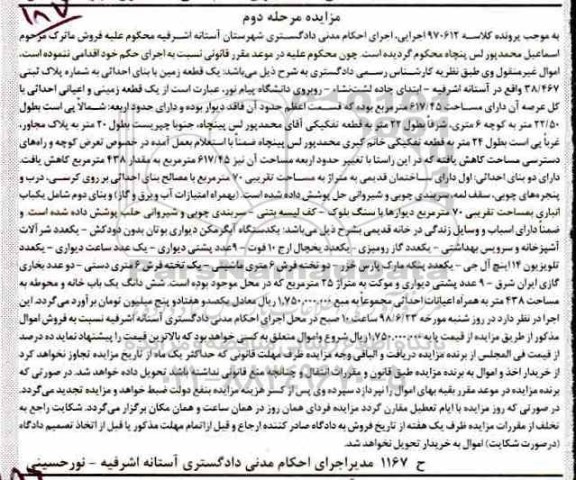 ۱۸۷
مزایده مرحله دوم
به موجب پرونده کلاسه ۹۷۰۶۱۲ اجرایی، اجرای احکام مدنی دادگستری شهرستان آستانه اشرفیه محکوم علیه فروش ماترک مرحوم
اسماعیل محمدپور لس پنچاه محکوم گردیده است. چون محکوم علیه در موعد مقرر قانونی نسبت به اجرای حکم خود اقدامی ننموده است،
اموال غیرمنقول وی طبق نظریه کارشناس رسمی دادگستری به شرح ذیل می‌باشد: یک قطعه زمین با بنای احداثی به شماره پلاک ثبتی
۳۸/۴۶۷ واقع در آستانه اشرفیه - ابتدای جاده لشت‌نشاء - روبروی دانشگاه پیام نور، عبارت است از یک قطعه زمینی و اعیانی احداثی با
کل عرصه آن دارای مساحت ۶۱۷/۴۵ مترمربع بوده که قسمت اعظم حدود آن فاقد دیوار بوده و دارای حدود اربعه: شمالاً پی است بطول
۲۲/۵۰ متر به کوچه ۶ متری، شرقاً بطول ۲۲ متر به قطعه تفکیکی آقای محمدپور لس پینچاه، جنوبا چپریست بطول ۲۰ متر به پلاک مجاور،
غرباً پی است بطول ۲۴ متر به قطعه تفکیکی خانم کبری محمدپور لس پینچاه ضمناً با استعلام بعمل آمده در خصوص تعرض کوچه و راه‌های
دسترسی مساحت کاهش یافته که در این راستا با تغییر حدود اربعه مساحت آن نیز ۶۱۷/۴۵ مترمربع به مقدار ۴۳۸ مترمربع کاهش یافت.
دارای دو بنای احداثی: اول دارای ساختمان قدیمی به متراژ به مساحت تقریبی ۷۰ مترمربع با مصالح بنای احداثی بر روی کرسی، درب و
پنجره‌های چوبی، سقف لمبه سربندی چوبی و شیروانی حل پوشش داده شده است. (بهمراه امتیازات آب و برق و گاز) و بنای دوم شامل یکباب
انباری بمساحت تقریبی ۷۰ مترمربع دیوارها با سنگ بلوک - کف لیسه بتنی - سربندی چوبی و شیروانی حلب پوشش داده شده است و
ضمناً دارای اسباب و وسایل زندگی در خانه قدیمی بشرح ذیل می‌باشد: یکدستگاه آبگرمکن دیواری بوتان بدون دودکش - یکعدد شرآلات
آشپزخانه و سرویس بهداشتی - یکعدد گاز رومیزی - یکعدد یخچال ارج ۱۰ فوت - ۹ عدد پشتی دیواری - یک عدد ساعت دیواری - یکعدد
تلویزیون ۱۴ اینچ آل جی - یکعدد پنکه مارک پارس خزر - دو تخته فرش ۶ متری ماشینی - یک تخته فرش ۶ متری دستی - دو عدد بخاری
گازی ایران شرق - ۹ عدد پشتی دیواری و موکت به متراژ ۲۵ مترمربع که در محل موجود بوده است. شش دانگ یک باب خانه و محوطه به
مساحت ۴۳۸ متر به همراه اعیانات احداثی مجموعاً به مبلغ ۱,۷۵۰,۰۰۰,۰۰۰ ریال معادل یکصد و هفتاد و پنج میلیون تومان بر آورد می‌گردد. این
اجرا در نظر دارد در روز شنبه مورخه ۹۸/۶/۲۳ ساعت ۱۰ صبح در محل اجرای احکام مدنی دادگستری آستانه اشرفیه نسبت به فروش اموال
مذکور از طریق مزایده از قیمت پایه ۱,۷۵۰,۰۰۰,۰۰۰ ریال شروع و اموال متعلق به کسی خواهد بود که بالاترین قیمت را پیشنهاد نماید ده درصد
از قیمت فی المجلس از برنده مزایده دریافت و الباقی وجه مزایده ظرف مهلت قانونی که حداکثر یک ماه از تاریخ مزایده تجاوز نخواهد کرد
از خریدار اخذ و اموال به برنده مزایده طبق قانون و مقررات انتقال و چنانچه منع قانونی نداشته باشد تحویل داده خواهد شد. در صورتی که
برنده مزایده در موعد مقرر بقیه بهای اموال را نپردازد سپرده وی پس از کسر هزینه مزایده بنفع دولت ضبط خواهد و مزایده تجدید می‌گردد.
در صورتی که روز مزایده با ایام تعطیل مقارن گردد مزایده فردای همان روز در همان ساعت و همان مکان برگزار می‌گردد. شکایت راجع به
تخلف از مقررات مزایده ظرف یک هفته از تاریخ فروش به دادگاه صادر کننده ارجاع و قبل از اتمام مهلت مذکور یا قبل از اتخاذ تصمیم دادگاه
(درصورت شکایت) اموال به خریدار تحویل نخواهد شد.
ح ۱۱۶۷ مدیر اجرای احکام مدنی دادگستری آستانه اشرفیه - نورحسینی